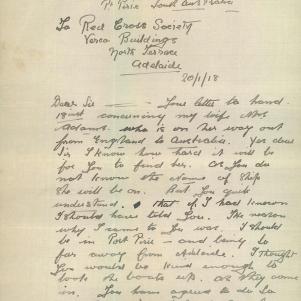 Pt Pirie South Australia
To Red Cross Society
Verco Buildings
North Terrace
Adelaide
20/1/18
Dear Sir Your letter to hand
18 inst concerning my wife Mrs
Adams who is on her way out
from England to Australia. Yes dear
Sir I know how hard it will be
for you to find her. As you do
not know the Name of Ship
She will be on. But you quite
understand. that if I had known
I should have told you. The reason
why I came to you was. I should
be in Port Pirie and being so
far away from Adelaide. I thought
you would be kind enough to
look the boats up. as they come
in. You have agreed to do so